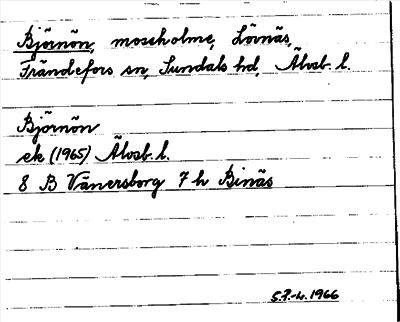 Björnön, mosseholme, Lövnäs,
Frändefors sn, Sundals hd, Älvsb. l.
Björnön
ek (1965) Älvsb. l.
8 B Vänersborg 7 h Binäs
S.F.-L. 1966